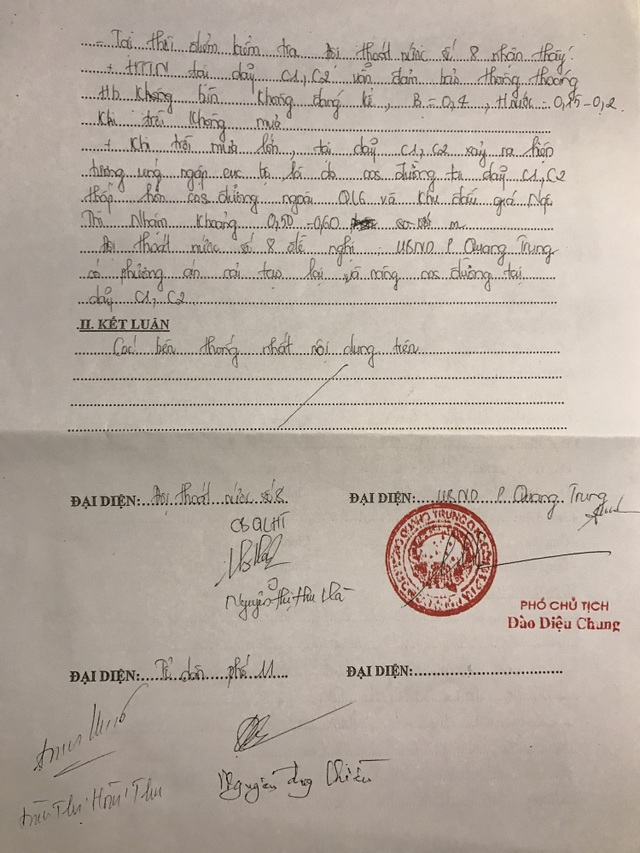 - Tại thời điểm kiểm tra Đội thoát nước số 8 nhận thấy:
+ HTTN tại dãy C1, C2 vẫn đảm bảo thông thoáng
Hb không bùn không đáng kể, B = 0,4, H nước = 0,15 - 0,2
Khi trời không mưa
+ Khi trời mưa lớn, tại dãy C1, C2 xảy ra hiện
tượng úng ngập cục bộ là do cos đường tại dãy C1, C2
thấp hơn cos đường ngoài QL6 và khu đấu giá Ngô
Thì Nhậm khoảng 0,50 - 0,60 m
Đội thoát nước số 8 đề nghị UBND P Quang Trung
có phương án cải tạo lại và nâng cos đường tại
dãy C1, C2
II. KẾT LUẬN
Các bên thống nhất nội dung trên
ĐẠI DIỆN: Đội thoát nước số 8
ĐẠI DIỆN: UBND P Quang Trung
CBQLHT
Nguyễn Thị Thu Hà
PHÓ CHỦ TỊCH
Đào Diệu Chung
ĐẠI DIỆN: Tổ dân phố 11
ĐẠI DIỆN:
Nguyễn Chiến
Thị Hoài Thu